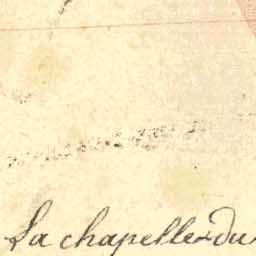 La chapelle du